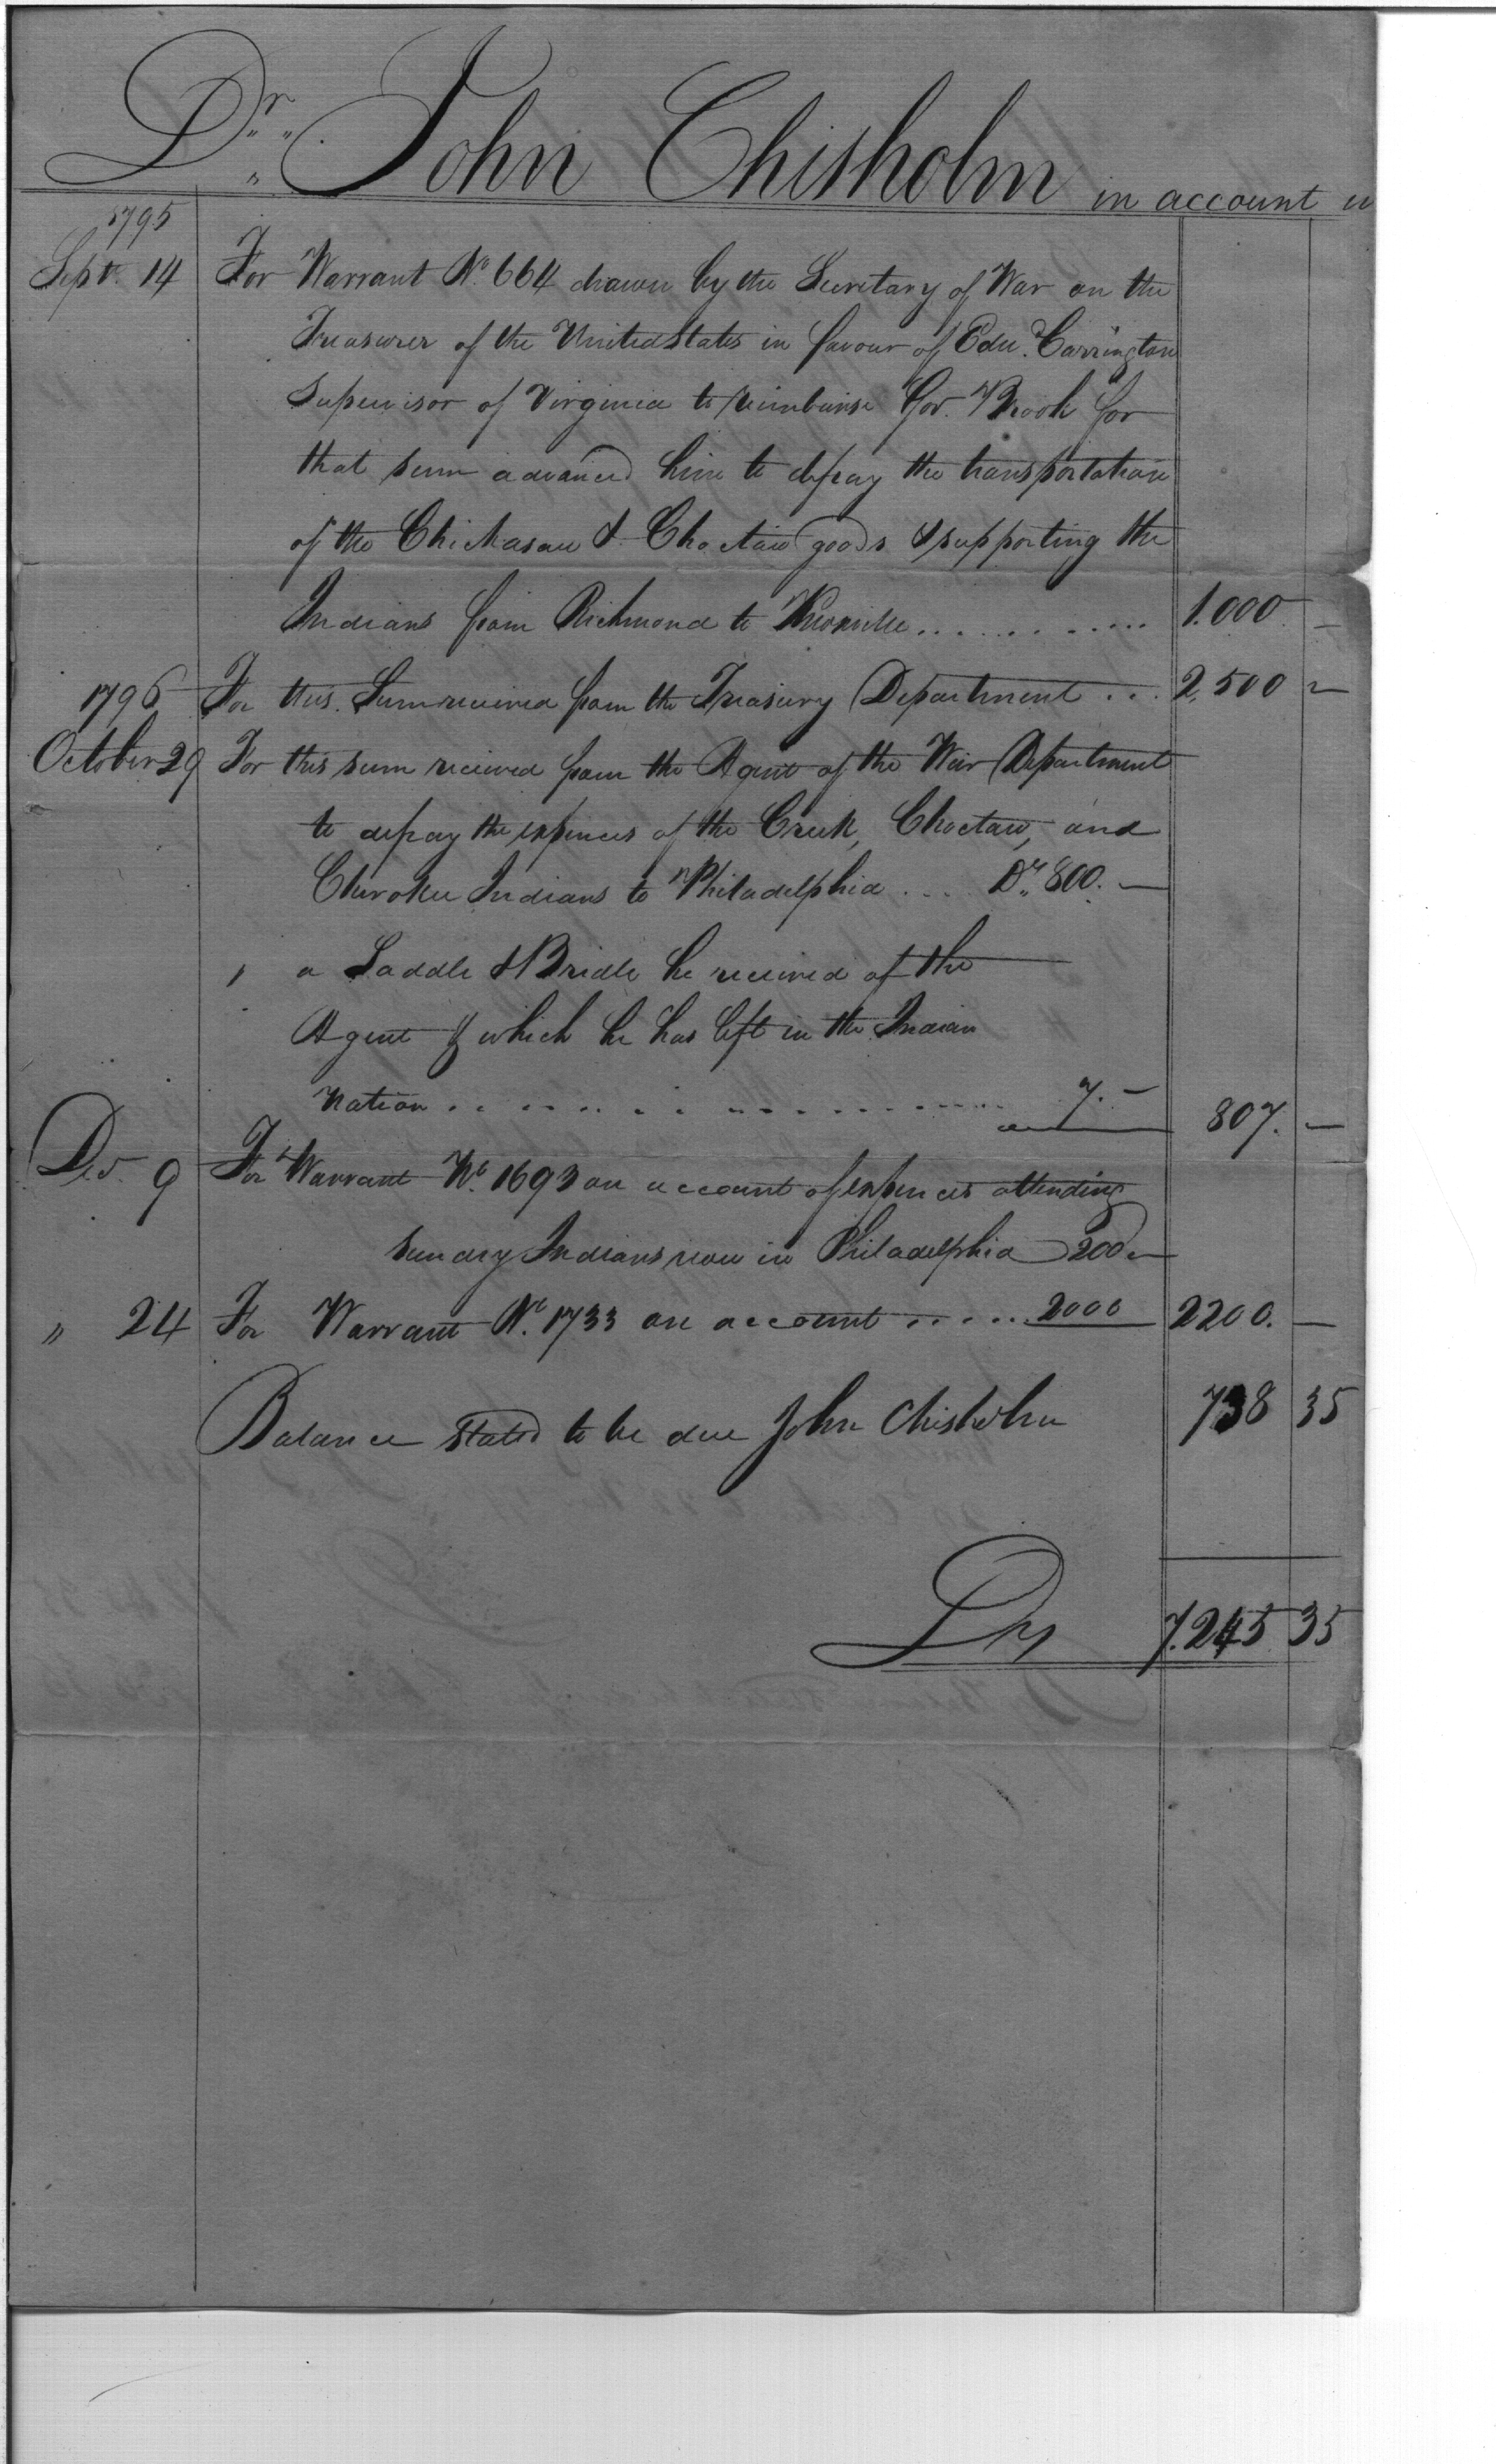 Dr. John Chisholm in account w
1795
Sept. 14 For Warrant No. 664 drawn by the Secretary of War on the
Treasurer of the United States in favour of Edw. Carrington
Supervisor of Virginia to reimburse Gov. Brook for
that sum advanced him to defray the transportation
of the Chickasaw & Choctaw goods & supporting the
Indians from Richmond to Knoxville ............ 1.000 —
1796 For this Sum received from the Treasury Department ... 2,500 —
October 29 For this sum received from the Agent of the War Department
to defray the expences of the Creek, Choctaw, and
Cherokee Indians to Philadelphia .... Drs 800. —
" a Saddle & Bridle he received of the
Agent & which he has left in the Indian
Nation .................. 7. — 807. —
Decr. 9 For Warrant No. 1693 on account of expences attending
sundry Indians now in Philadelphia 200 —
" 24 For Warrant No. 1733 on account ...... 2000 2200. —
Balance stated to be due John Chisholm 738 35
Drs 7.245 35